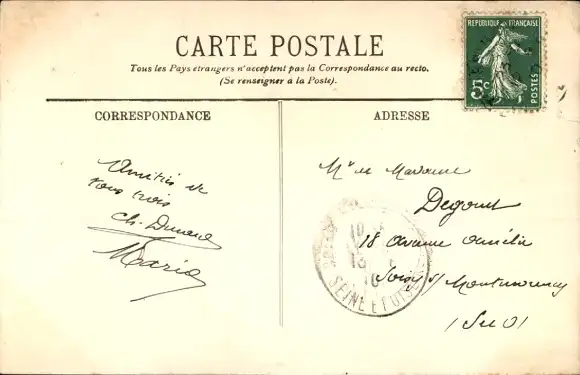 CARTE POSTALE
Tous les Pays étrangers n'acceptent pas la Correspondance au recto.
(Se renseigner à la Poste).
REPUBLIQUE FRANÇAISE
5c
POSTES
CORRESPONDANCE
ADRESSE
Amitiés de
tous trois
Ch. Durand
Maria
Mr et Madame
Degout
18 Avenue Amélie
Soisy s/ Montmorency
(S et O)
SEINE ET OISE